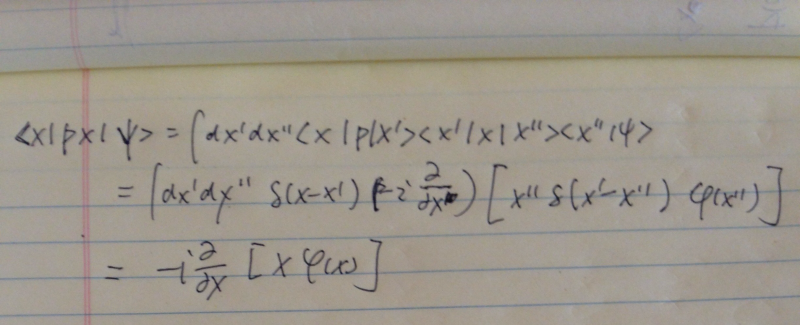 <x|px|ψ> = ∫dx'dx"<x|p|x'><x'|x|x"><x"|ψ>
= ∫dx'dx" δ(x-x') (-i ∂/∂x) [x" δ(x'-x") φ(x")]
= -i ∂/∂x [x φ(x)]